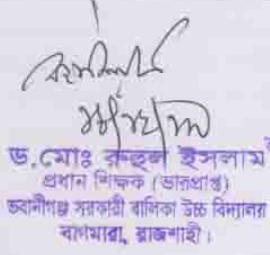 ড.মোঃ রুহুল ইসলাম
প্রধান শিক্ষক (ভারপ্রাপ্ত)
ভবানীগঞ্জ সরকারী বালিকা উচ্চ বিদ্যালয়
বাগমারা, রাজশাহী।